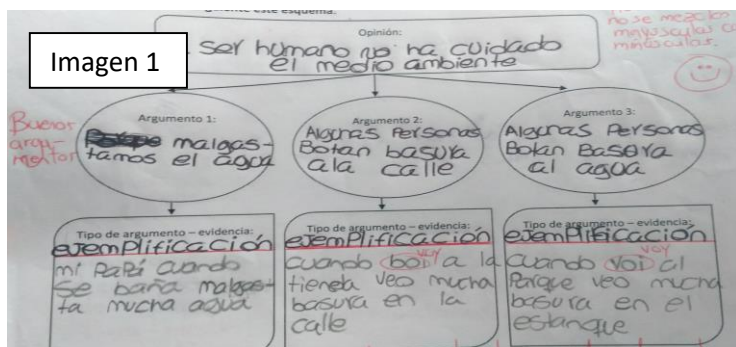 Imagen 1
este esquema:
no se mezclan
minúsculas
Opinión:
ser humano no ha cuidado
el medio ambiente
Buenos
argu-
mentos
Argumento 1:
malgas-
tamos el agua
Argumento 2:
Algunas Personas
Botan basura
ala calle
Argumento 3:
Algunas Personas
Botan Basura
al agua
Tipo de argumento – evidencia:
ejemplificación
mi Papá cuando
se baña malgas-
ta mucha agua
Tipo de argumento – evidencia:
ejemplificación
voy
cuando boi a la
tienda veo mucha
basura en la
calle
Tipo de argumento – evidencia:
ejemplificación
voy
cuando voi al
Parque veo mucha
basura en el
estanque